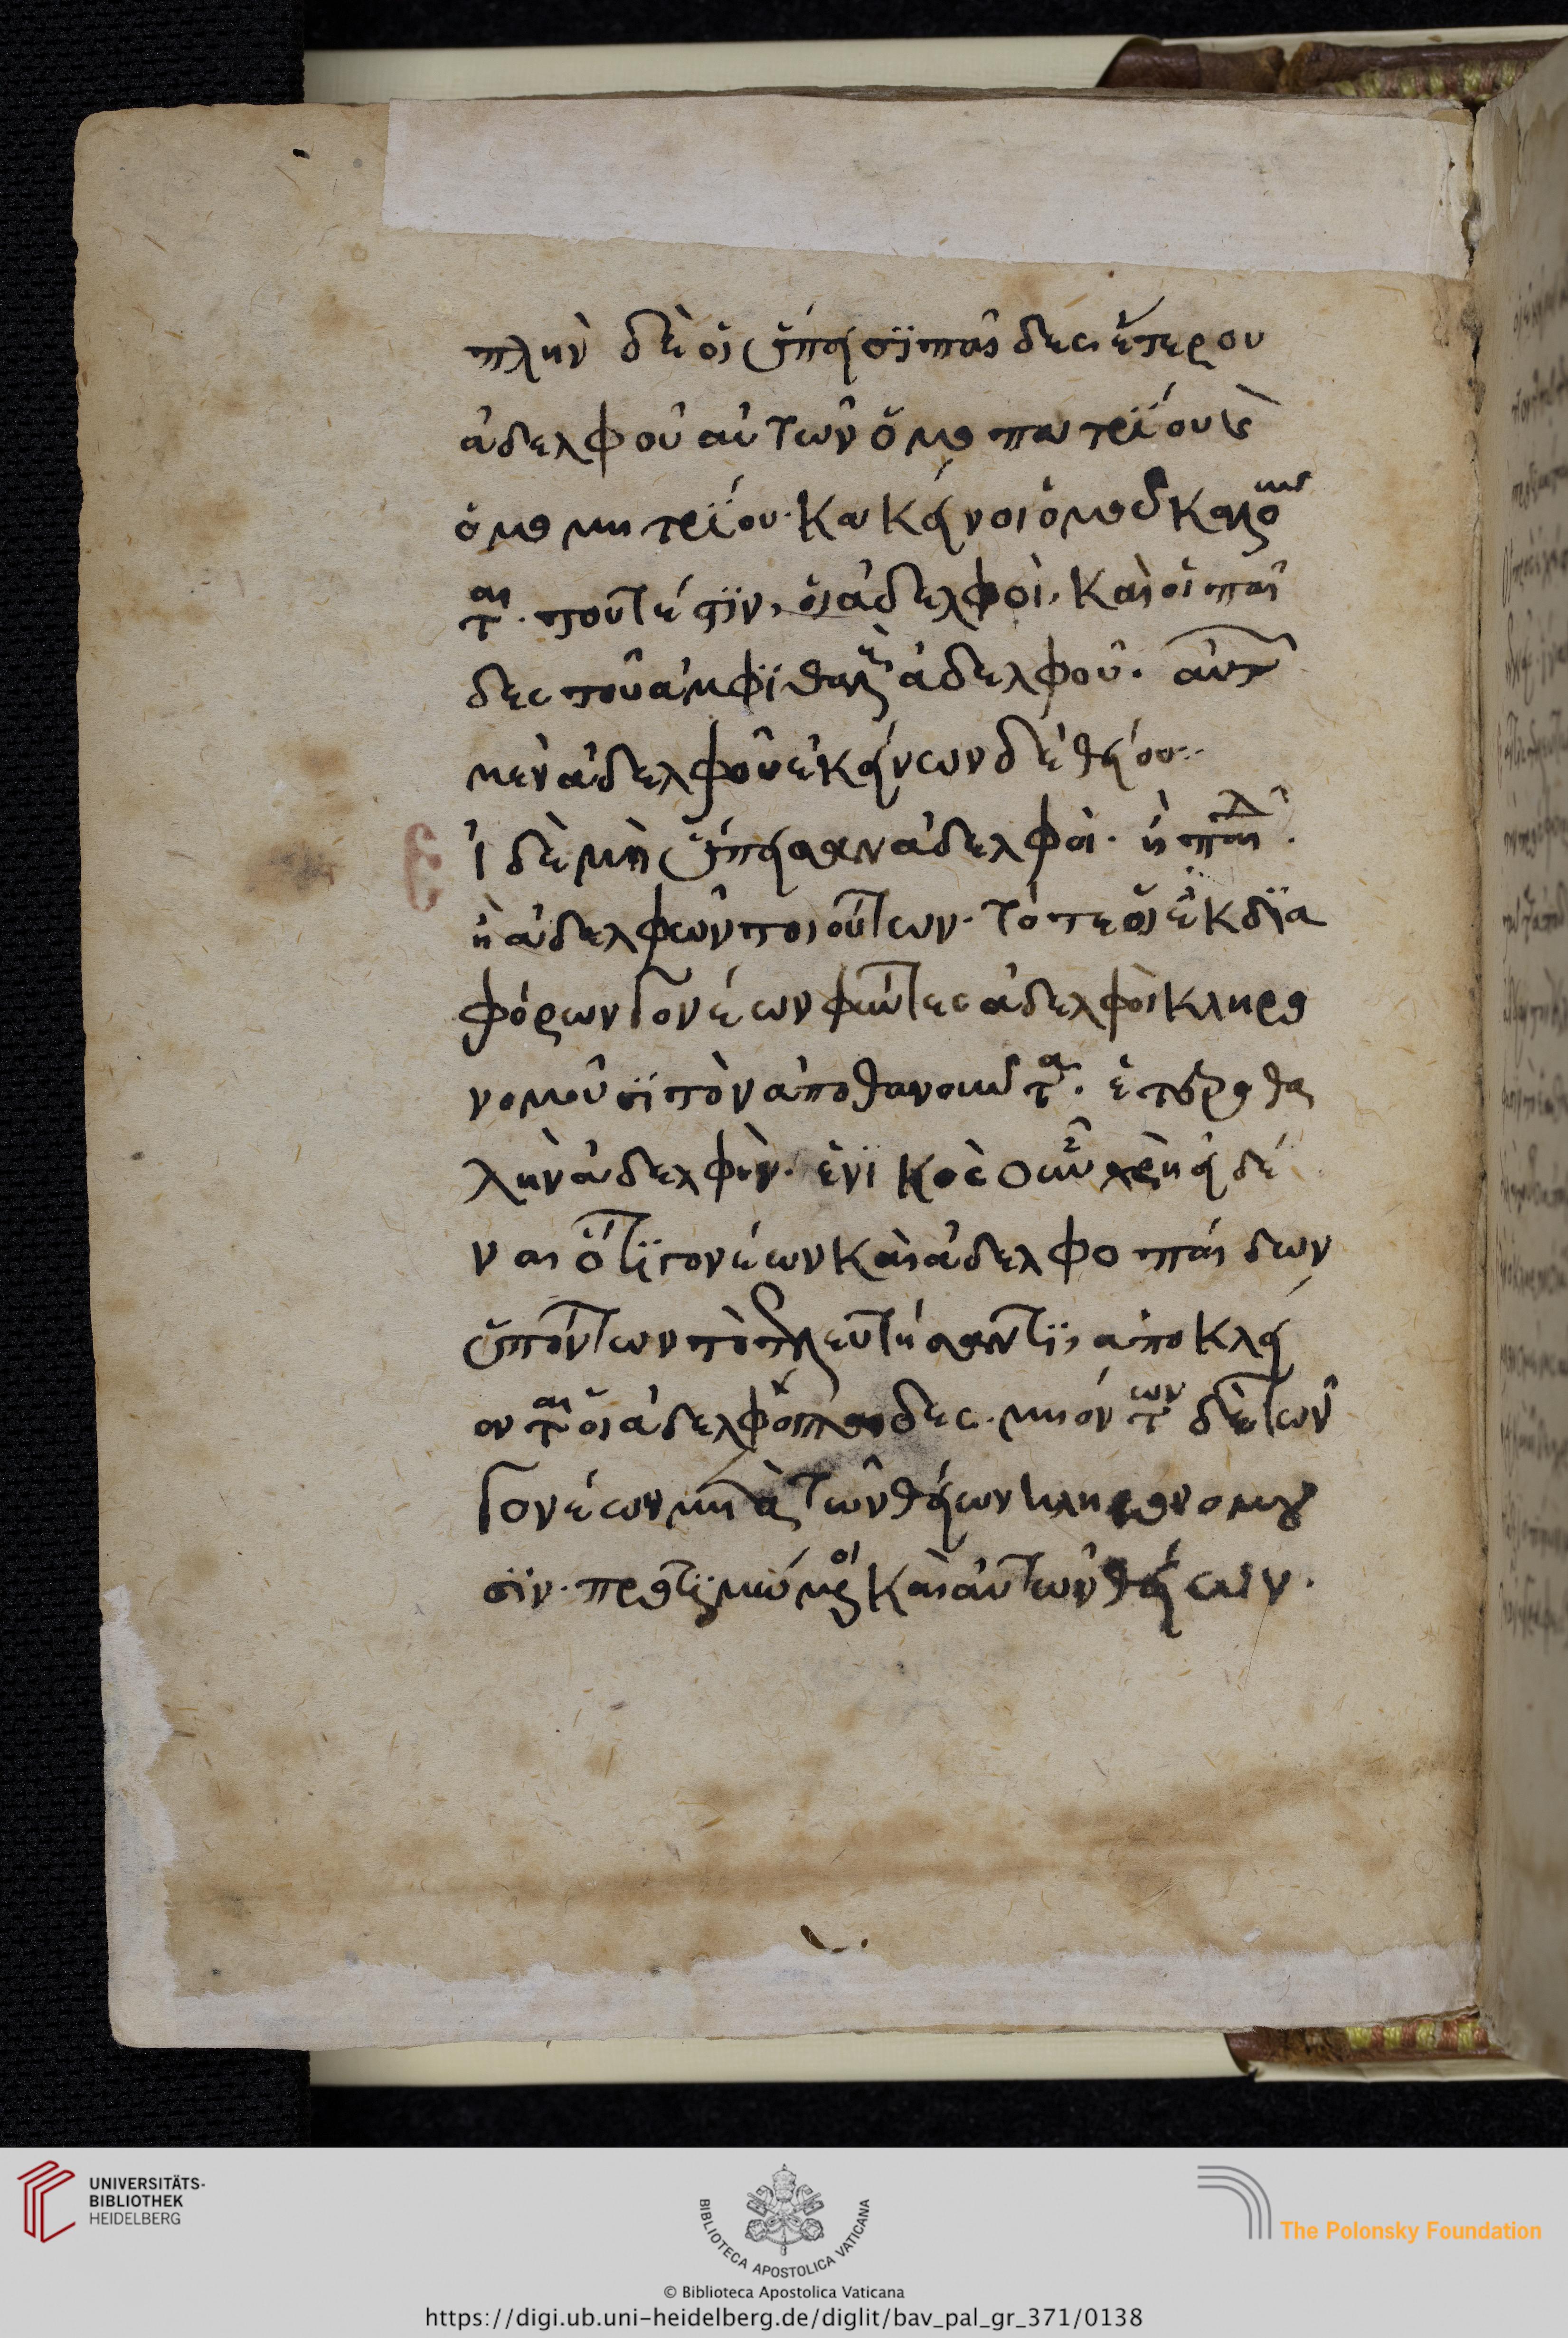 πλὴν δὲ οἱ ὑπάρσϊ παῖδες ἑτέρου
ἀδελφοῦ αὐτῶν ὁμοπατρΐου ἐ
ὁμομητρΐου. κακείνοι ὁμοῦ καλοῦν
ται. τουτέστϊν, οἱ ἀδελφοὶ, καὶ οἱ παῖ
δες τοῦ ἀμφϊθαλοῦς ἀδελφοῦ. αὐτῶν
μὲν ἀδελφοῦ ἐκείνων δὲ θείου:
Εἰ δὲ μὴ ὑπάρσαν ἀδελφοὶ. ἢ παῖδες.
ἢ ἀδελφῶν τοιούτων. τότε οἱ ἐκ δϊα
φόρων γονέων φῶντες ἀδελφοὶ κληρο
νομοῦσϊ τὸν ἀποθανοῦντα. ἑτεροθα
λὴν ἀδελφὸν. ἐνϊκὸς οὖν χρὴ εἰδέ
ναι ὅτϊ γονέων καὶ ἀδελφοπαίδων
ὑπόντων τὸ τελευτήσαντϊ, ἀποκλεί
ονται οἱ ἀδελφόπαιδες. μὴ ὄντων δὲ τῶν
γονέων μετὰ τῶν θείων κληρονομοῦ
σϊν. προτϊμώμενοι καὶ αὐτῶν θείων.
UNIVERSITÄTS-
BIBLIOTHEK
HEIDELBERG
BIBLIOTECA APOSTOLICA VATICANA
The Polonsky Foundation
© Biblioteca Apostolica Vaticana
https://digi.ub.uni-heidelberg.de/diglit/bav_pal_gr_371/0138